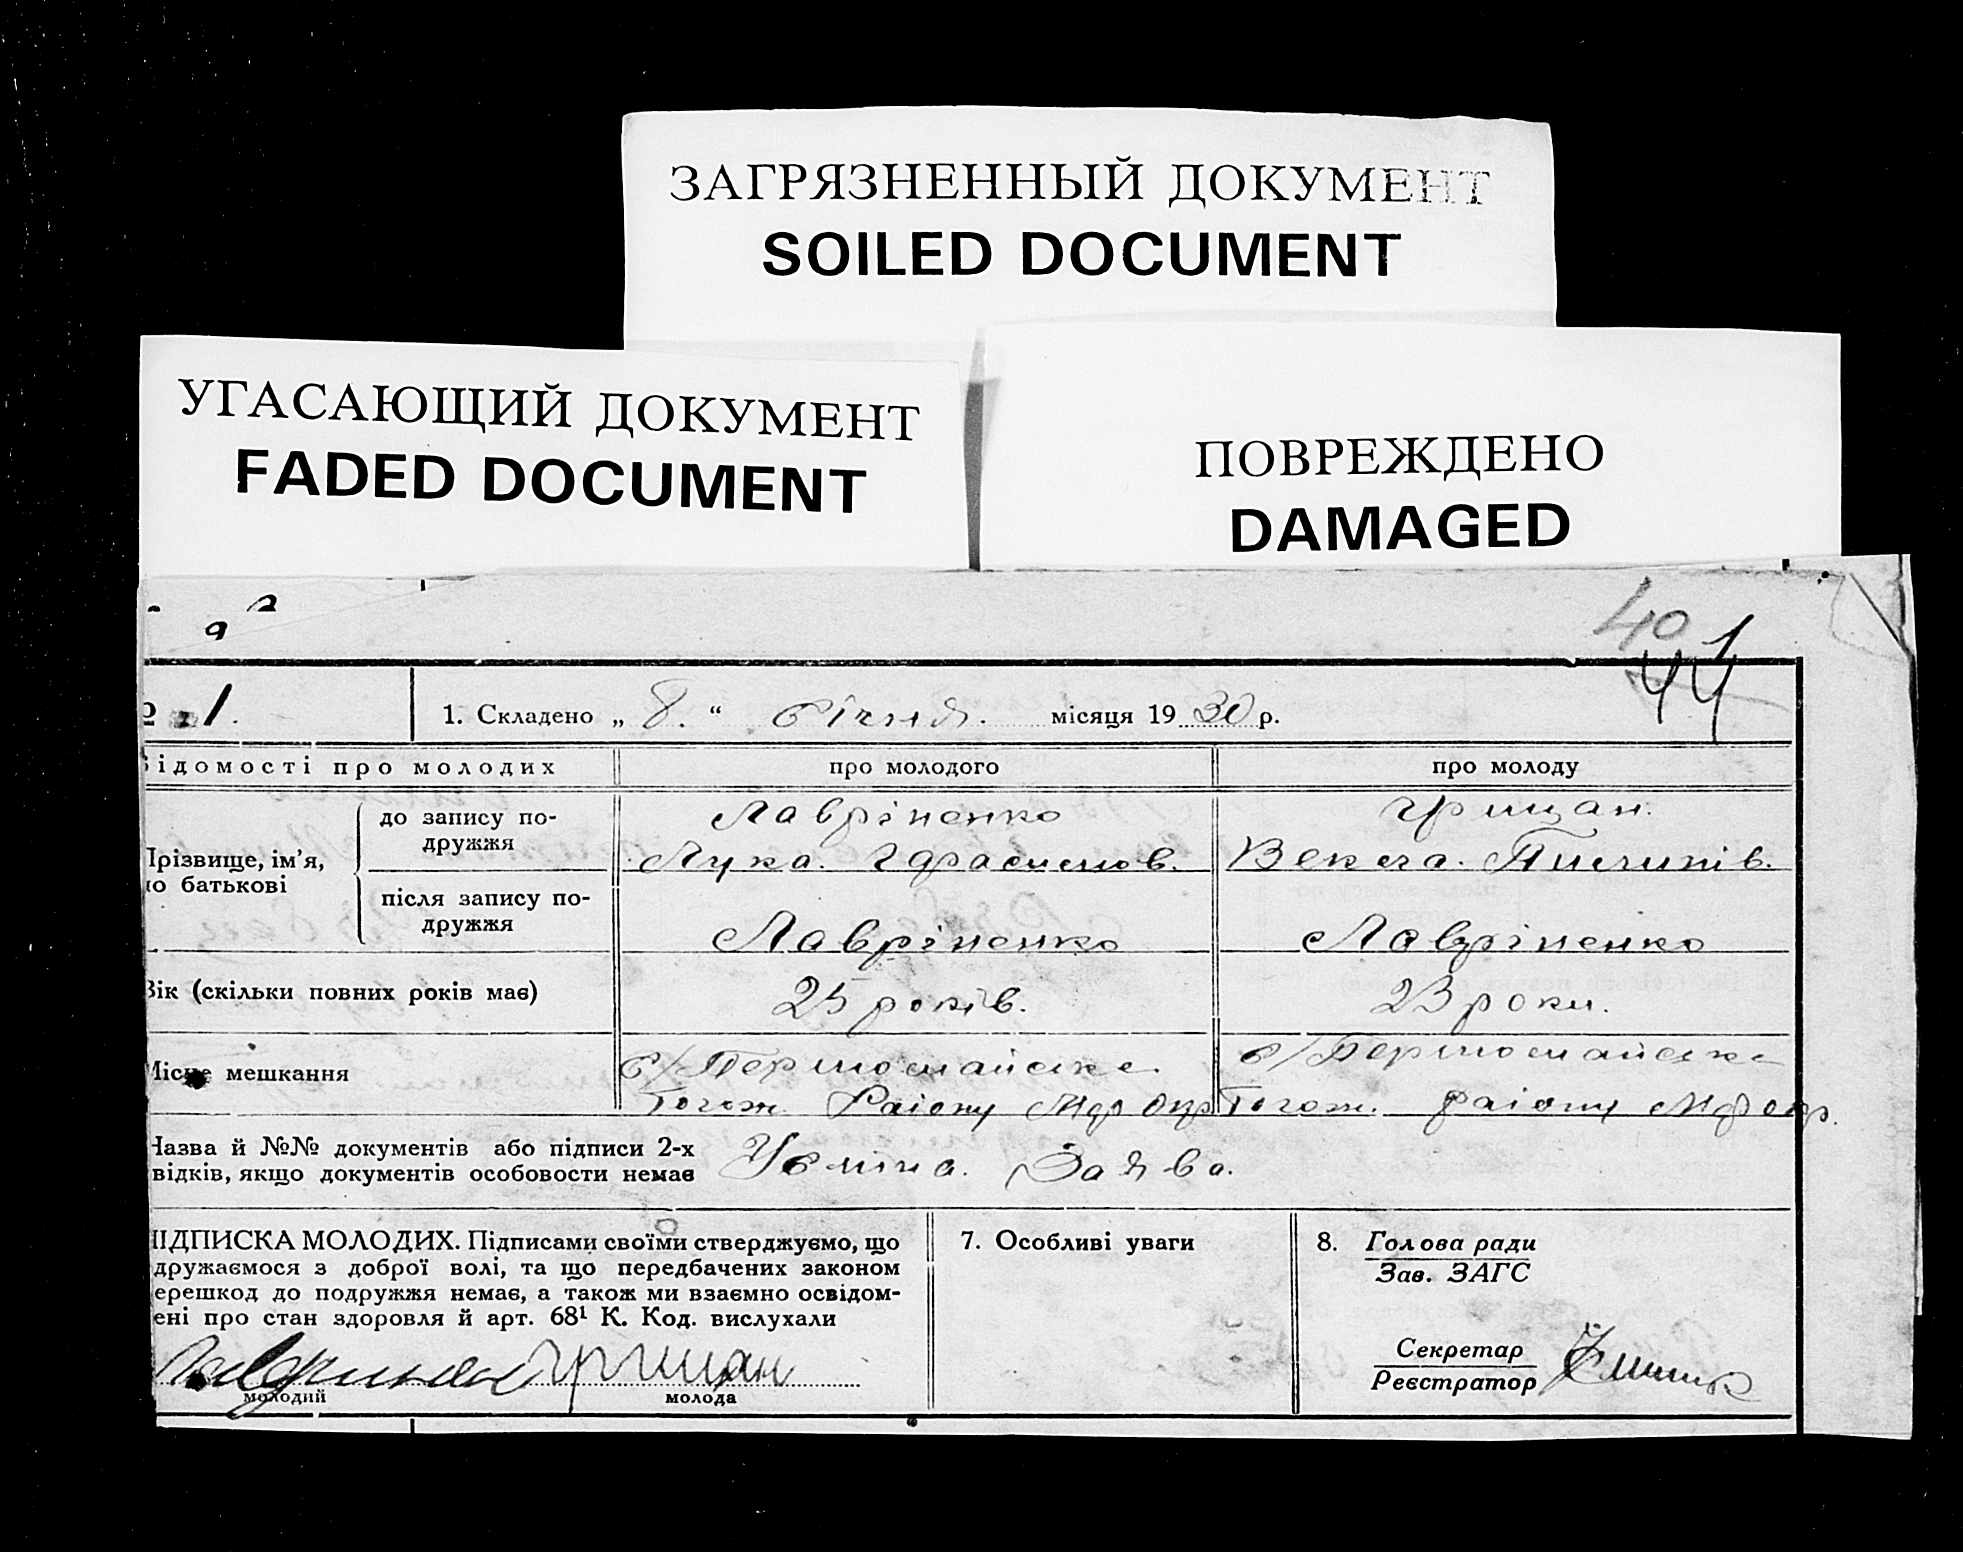 ЗАГРЯЗНЕННЫЙ ДОКУМЕНТ
SOILED DOCUMENT
УГАСАЮЩИЙ ДОКУМЕНТ
FADED DOCUMENT
ПОВРЕЖДЕНО
DAMAGED
40 1
44
1. 1. Складено „ 8. “ Січня. місяця 1930 р.
ідомості про молодих про молодого про молоду
різвище, ім’я,
о батькові
до запису по-
дружжя
Лавріненко
Лука.
Грищан.
Векла. Пилипів.
після запису по-
дружжя
Лавріненко Лавріненко
ік (скільки повних років має) 25 років. 23 роки.
мешкання
с/Першомайське
Району
с/Першомайське
району
азва й №№ документів або підписи 2-х
відків, якщо документів особовости немає
Усміна. Заява.
ІДПИСКА МОЛОДИХ. Підписами своїми стверджуємо, що
дружаємося з доброї волі, та що передбачених законом
ерешкод до подружжя немає, а також ми взаємно освідом-
ені про стан здоровля й арт. 68¹ К. Код. вислухали
Грищан
молодий молода
7. Особливі уваги
8. Голова ради
Зав. ЗАГС
Секретар
Реєстратор